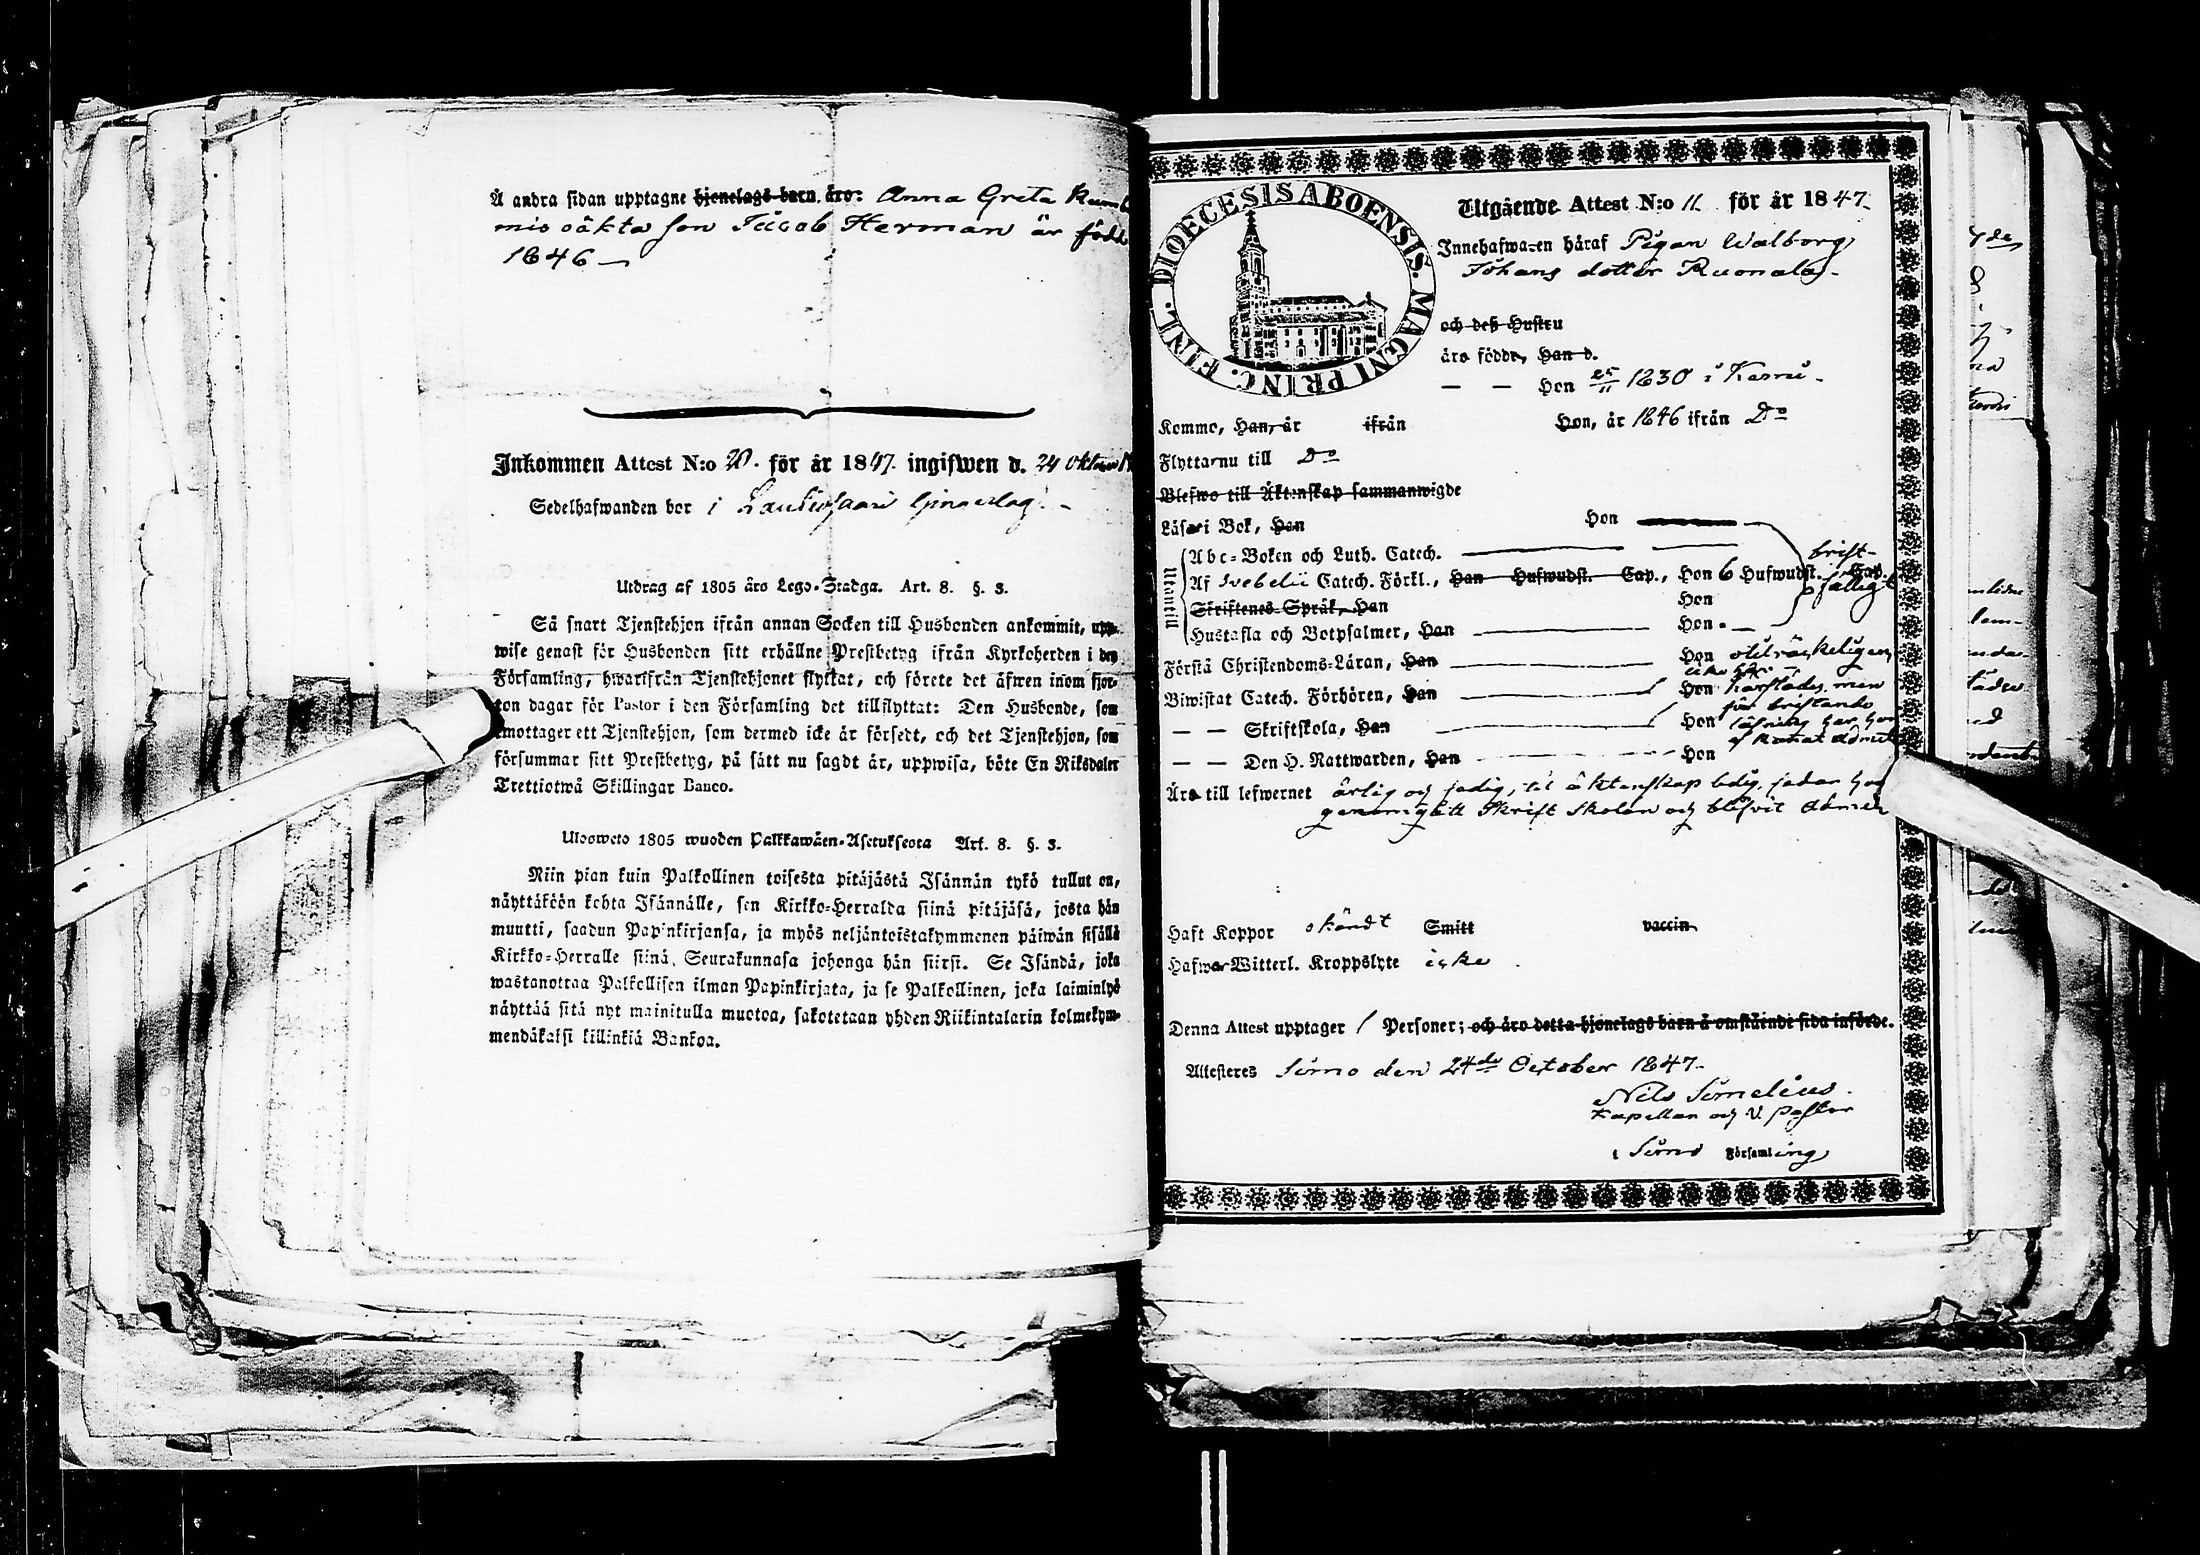 Å andra sidan upptagne hjonelags barn äro: Anna Greta
oäkta son Jacob Herman är född
1846 —
Inkommen Attest N:o 20. för år 1847. ingifwen d. 24
Sedelhafwanden bor i
Utdrag af 1805 års Lego-Stadga. Art. 8. §. 3.
Så snart Tjenstehjon ifrån annan Socken till Husbonden ankommit, upp-
wise genast för Husbonden sitt erhållne Prestbetyg ifrån Kyrkoherden i den
Församling, hwarifrån Tjenstehjonet flyttat, och förete det äfwen inom fjor-
ton dagar för Pastor i den Församling det tillflyttat: Den Husbonde, som
emottager ett Tjenstehjon, som dermed icke är försedt, och det Tjenstehjon, som
försummar sitt Prestbetyg, på sätt nu sagdt är, uppwisa, böte En Riksdaler
Trettiotwå Skillingar Banco.
Ulosweto 1805 wuoden Palkkawäen-Asetuksesta Art. 8. §. 3.
Niin pian kuin Palkollinen toisesta pitäjästä Isännän tykö tullut on,
näyttäköön kohta Isännälle, sen Kirkko-Herralda siinä pitäjäsä, josta hän
muutti, saadun Papinkirjansa, ja myös neljäntoistakymmenen päiwän sisällä
Kirkko-Herralle siinä Seurakunnasa johonga hän siirsi. Se Isändä, joka
wastanottaa Palkollisen ilman Papinkirjata, ja se Palkollinen, joka laiminlyö
näyttää sitä nyt mainitulla muotoa, sakotetaan yhden Riikintalarin kolmekym-
mendäkaksi killinkiä Bankoa.
DIOECESIS ABOENSIS. MAGNI PRINC. FINL.
Utgående Attest N:o 11. för år 1847.
Innehafwaren häraf Pigan Walborg
Johans dotter Ruonala
och deß Hustru
äro födde, Han d.
— — Hon 25/11 1830 i Kemi
Komme, Han, år ifrån Hon, år 1846 ifrån Do
Flyttar nu till Do
Blefwo till Äktenskap sammanwigde
Läsa i Bok, Han Hon
Utantill
Abc-Boken och Luth. Catech.
brist-
Af Svebelii Catech. Förkl., Han Hufwudst. Cap., Hon 6 Hufwudst. Cap.
fällig
Skriftenes Språk, Han Hon
Hustafla och Botpsalmer, Han Hon
Förstå Christendoms-Läran, Han Hon otilräckeligen
Biwistat Catech. Förhören, Han Hon härstädes, men
för bristande
— — Skriftskola, Han Hon läsning har hon
ej
— — Den H. Nattwarden, Han Hon
Äro till lefwernet ärlig och sedig, til äktenskap ledig, sedan hon
genomgått Skrift Skolan och blifvit
Haft Koppor okändt Smitt vaccin.
Hafwa Witterl. Kroppslyte icke
Denna Attest upptager 1 Personer; och äro detta hjonelags barn å omstående sida införde.
Attesteres Simo den 24de October 1847.
Nils Simelius.
Kapellan och V. Pastor
i Simo Församling